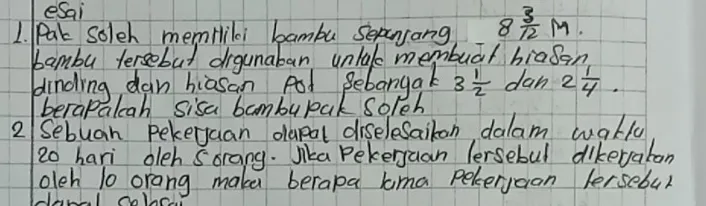 esai
1. Pak Soleh memiliki bambu sepanjang 8 3/12 M.
bambu tersebut digunakan untuk membuat hiasan
dinding dan hiasan Pot sebanyak 3 1/2 dan 2 1/4.
berapakah sisa bambu pak Soleh
2 Sebuah Pekerjaan dapat diselesaikan dalam waktu
20 hari oleh 5 orang. Jika Pekerjaan tersebut dikerjakan
oleh 10 orang maka berapa lama Pekerjaan tersebut
dapat selesai